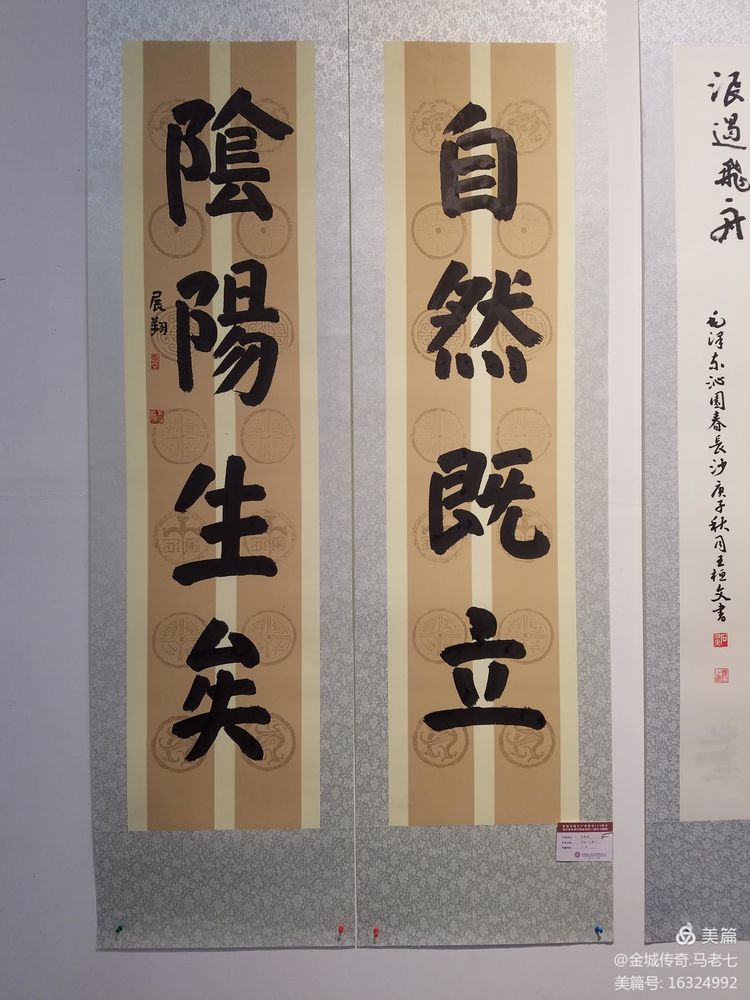 自然既立
陰陽生矣
展翔
浪遏飛舟
毛泽东沁園春長沙庚子秋月王桓文書
美篇
@金城传奇.马老七
美篇号: 16324992